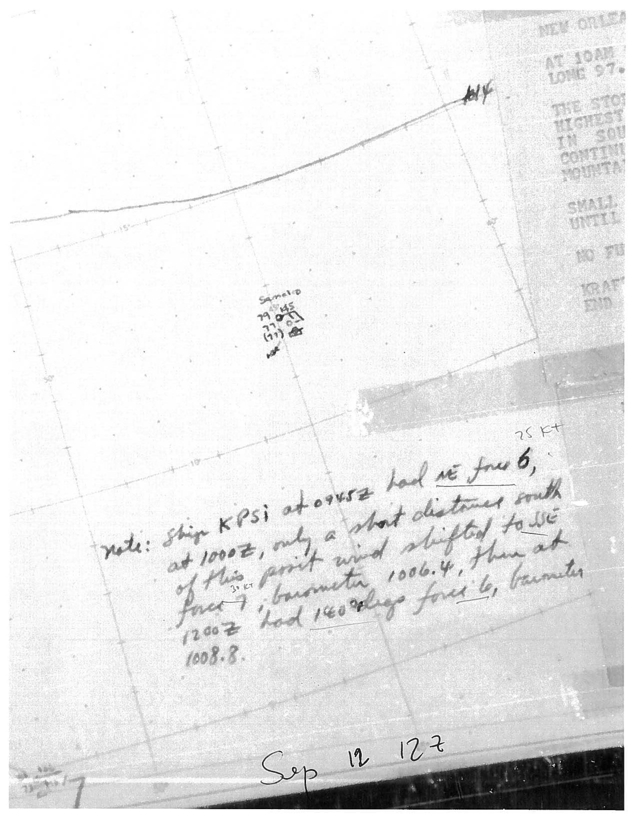 NEW ORLEA
AT 10AM
LONG 97.
THE STOR
HIGHEST
IN SOU
CONTINU
MOUNTAI
SMALL
UNTIL
NO FU
KRAF
END
1014
79
77
(77)
25 KT
Note: Ship KPSI at 0945Z had NE force 6,
at 1000Z, only a short distance south
of this posit wind shifted to SSE
force 7, barometer 1006.4, then at
1200Z had 140 degs force 6, barometer
1008.8.
Sep 12 12Z